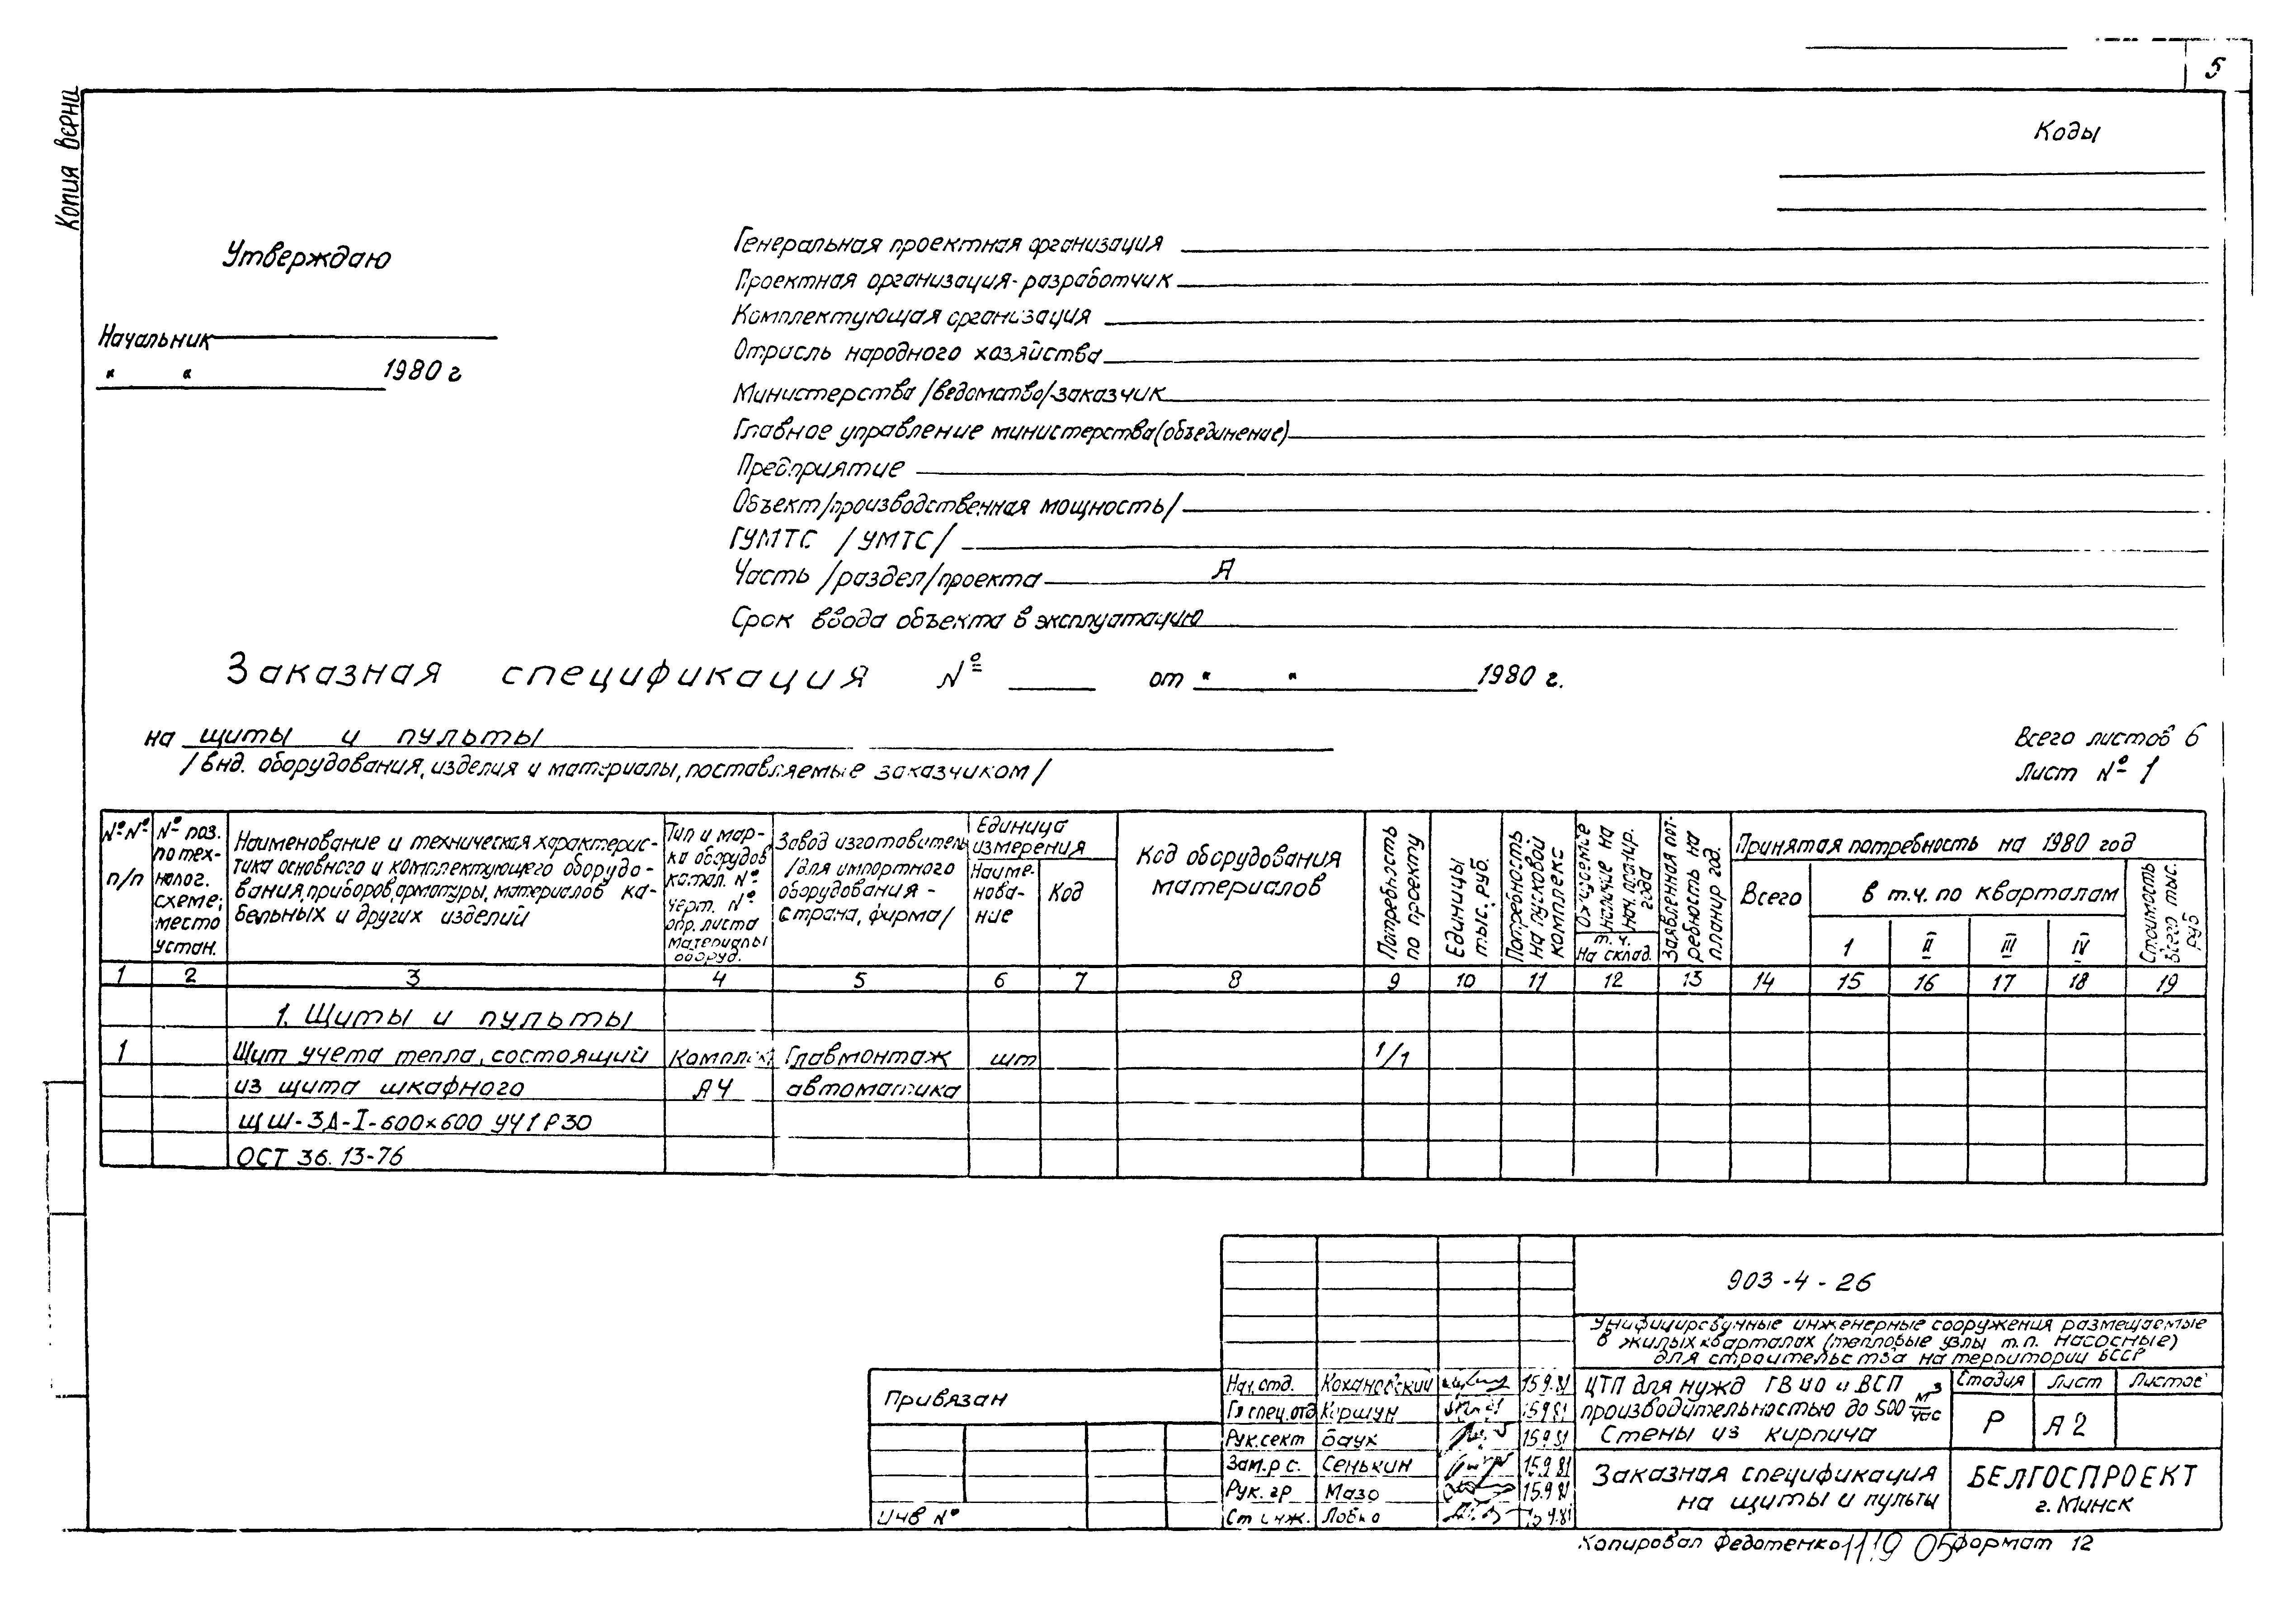 5
Копия верна
Коды
Утверждаю
Начальник
" " 1980 г
Генеральная проектная организация
Проектная организация-разработчик
Комплектующая организация
Отрасль народного хозяйства
Министерства /ведомство/-заказчик
Главное управление министерства(объединение)
Предприятие
Объект/производственная мощность/
ГУМТС /УМТС/
Часть /раздел/проекта А
Срок ввода объекта в эксплуатацию
Заказная спецификация № от " " 1980 г.
на щиты и пульты
/вид. оборудования, изделия и материалы, поставляемые заказчиком/
Всего листов 6
Лист № 1
№ №
п/п
№ поз.
по тех-
нолог.
схеме;
место
устан.
Наименование и техническая характерис-
тика основного и комплектующего оборудо-
вания, приборов, арматуры, материалов ка-
бельных и других изделий
Тип и мар-
ка оборудов
катал. №
черт. №
опр. листа
материалы
оборуд.
Завод изготовитель
/для импортного
оборудования -
страна, фирма/
Единица
измерения
Наиме-
нова-
ние
Код
Код оборудования
материалов
Потребность
по проекту
Единицы
тыс. руб.
Потребность
на пусковой
комплекс
Ожидаемое
наличие на
нач. планир.
года
т. ч.
На склад.
Заявленная пот-
ребность на
планир год.
Принятая потребность на 1980 год
Всего
в т.ч. по кварталам
1 II III IV
Стоимость
всего тыс.
руб
1 2 3 4 5 6 7 8 9 10 11 12 13 14 15 16 17 18 19
1. Щиты и пульты
1 Щит учета тепла, состоящий Комплек Главмонтаж шт 1/1
из щита шкафного А4 автоматика
ЩШ-ЗД-I-600×600 УЧ1Р30
ОСТ 36.13-76
903-4-26
Унифицированные инженерные сооружения размещаемые
в жилых кварталах (тепловые узлы т.п. насосные)
для строительства на территории БССР
Привязан
Инв №
Нач. отд. Кохановский 15.9.81
Гл спец. отд Коршун 15.9.81
Рук. сект Баук 15.9.81
Зам. р с. Сенькин 15.9.81
Рук. гр Мазо 15.9.81
Ст инж. Лобко 15.9.81
ЦТП для нужд ГВ ио и ВСП
производительностью до 500 м³/час
Стены из кирпича
Стадия Лист Листов
Р А2
Заказная спецификация
на щиты и пульты
БЕЛГОСПРОЕКТ
г. Минск
Копировал Федотенко 1119 05 Формат 12